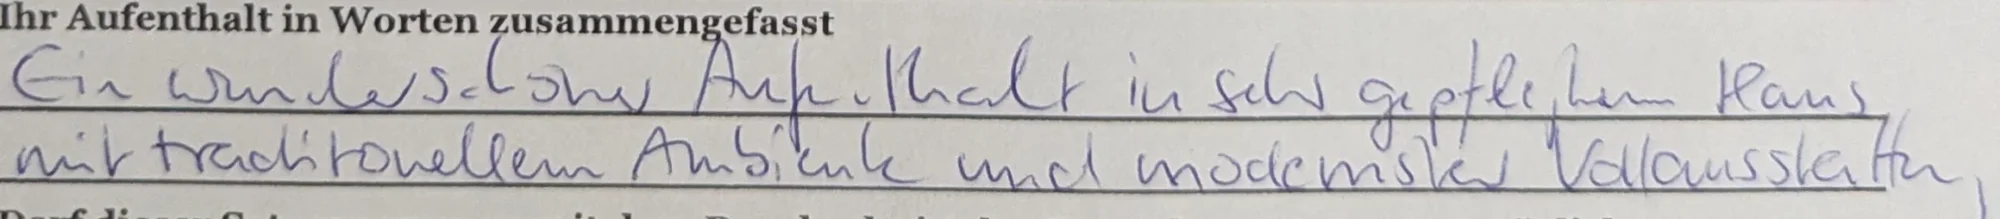 Ihr Aufenthalt in Worten zusammengefasst
Ein wunderschöner Aufenthalt in sehr gepflegtem Haus
mit traditionellem Ambiente und modernster Vollausstattung